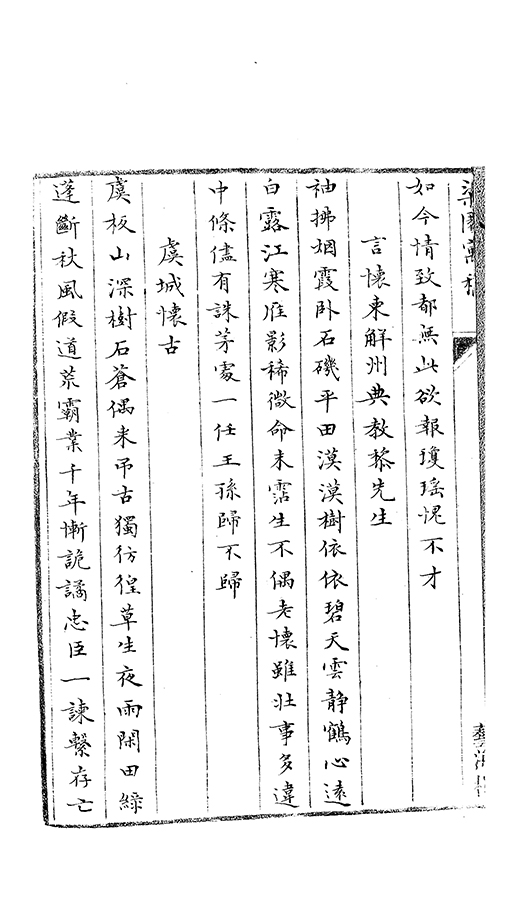 如今情致都無此欲報瓊瑤愧不才
言懷柬解州典教黎先生
袖拂烟霞卧石磯平田漠漠樹依依碧天雲静鶴心遠
白露江寒雁影稀微命未霑生不偶老懷雖壯事多違
中條儘有誅茅處一任王孫歸不歸
虞城懷古
虞坂山深樹石蒼偶来吊古獨彷徨草生夜雨閑田綠
蓬斷秋風假道荒霸業千年慚詭譎忠臣一諫繫存亡